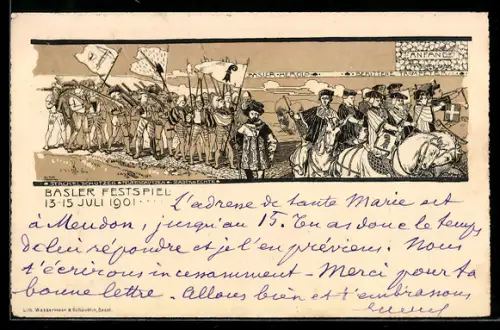 ANFANG
BASLER-HEROLD BERITTENE TROMPETER
BASLER FESTSPIEL
13-15 JULI 1901
L'adresse de tante Marie est
à Meudon, jusqu'au 15. Tu as donc le temps
de lui répondre et je l'en préviens. Nous
t'écrirons incessamment - Merci pour ta
bonne lettre. Allons bien et t'embrassons
Lith. Wassermann & Schäublin, Basel.